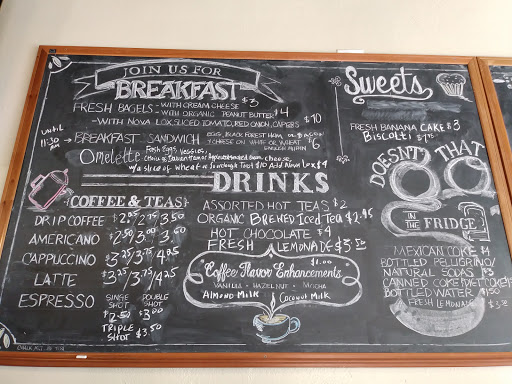 JOIN US FOR
BREAKFAST
FRESH BAGELS - WITH CREAM CHEESE $3
- WITH ORGANIC PEANUT BUTTER $4
- WITH NOVA LOX, SLICED TOMATO, RED ONION, CAPERS $10
UNTIL 11:30 AM
BREAKFAST SANDWICH EGG, BLACK FOREST HAM OR BACON
Y CHEESE ON WHEAT
ENGLISH MUFFIN $6
Omelette Fresh Eggs, veggies,
cheese,
w/a slice of wheat or Sourdough Toast $10 Add Nova Lox $4
DRINKS
COFFEE & TEAS
DRIP COFFEE $2.25 2.75 3.50
AMERICANO $2.50 3.00
CAPPUCCINO $3.25 3.75 4.25
LATTE 3.25 3.75 4.25
ESPRESSO SINGLE SHOT $2.50 DOUBLE SHOT $3.00
TRIPLE SHOT $3.50
ASSORTED HOT TEAS $2
ORGANIC BREWED ICED TEA $2.95
HOT CHOCOLATE $4
FRESH LEMONADE $3.50
Coffee Flavor Enhancements
$1.00
VANILLA - HAZELNUT - MOCHA
Almond Milk Coconut Milk
Sweets
FRESH BANANA CAKE $3
BISCOTTI $1.75
DOESN'T THAT
GO
IN THE FRIDGE
MEXICAN COKE $4
BOTTLED PELLIGRINO/
NATURAL SODAS $3
CANNED COKE/DIET COKE
BOTTLED WATER $1.50
FRESH LEMONADE $3.50